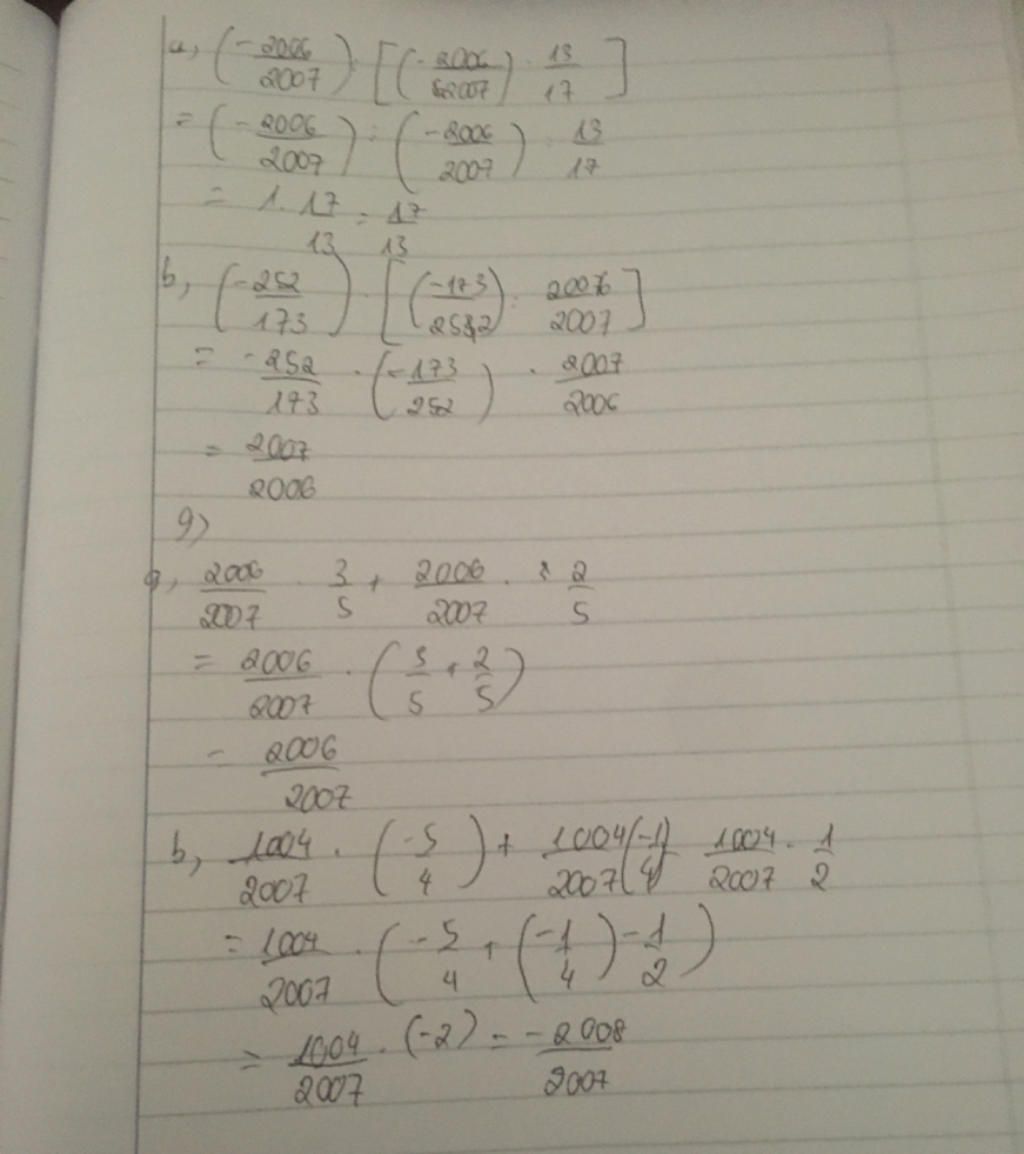 a, (-2006/2007) : [(-2006/2007) . 13/17]
= (-2006/2007) : (-2006/2007) : 13/17
= 1 . 17/13 = 17/13
b, (-252/173) . [(-173/252) : 2006/2007]
= -252/173 . (-173/252) . 2007/2006
= 2007/2006
9)
a, 2006/2007 . 3/5 + 2006/2007 . 2/5
= 2006/2007 . (3/5 + 2/5)
= 2006/2007
b, 1004/2007 . (-5/4) + 1004/2007 (-1/4) 1004/2007 . 1/2
= 1004/2007 . (-5/4 + (-1/4) - 1/2)
= 1004/2007 . (-2) = -2008/2007